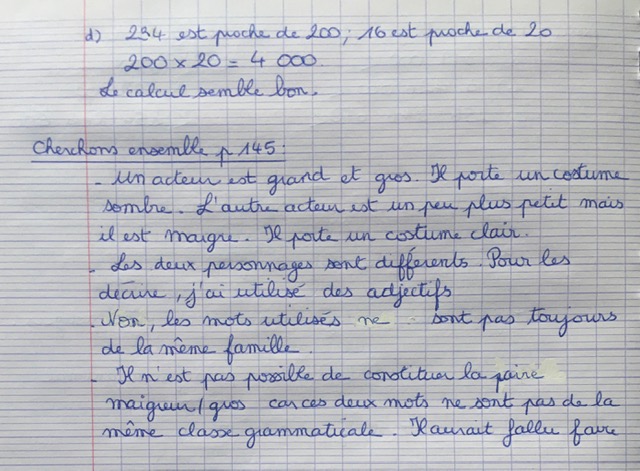 d) 234 est proche de 200 ; 16 est proche de 20
200 × 20 = 4 000.
Le calcul semble bon.
Cherchons ensemble p 145 :
- Un acteur est grand et gros. Il porte un costume
sombre. L'autre acteur est un peu plus petit mais
il est maigre. Il porte un costume clair.
- Les deux personnages sont différents. Pour les
décrire, j'ai utilisé des adjectifs
- Non, les mots utilisés ne sont pas toujours
de la même famille.
- Il n'est pas possible de constituer la paire
maigreur/gros car ces deux mots ne sont pas de la
même classe grammaticale. Il aurait fallu faire